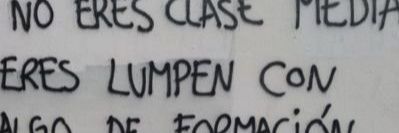 NO ERES CLASE MEDIA
ERES LUMPEN CON
ALGO DE FORMACIÓN